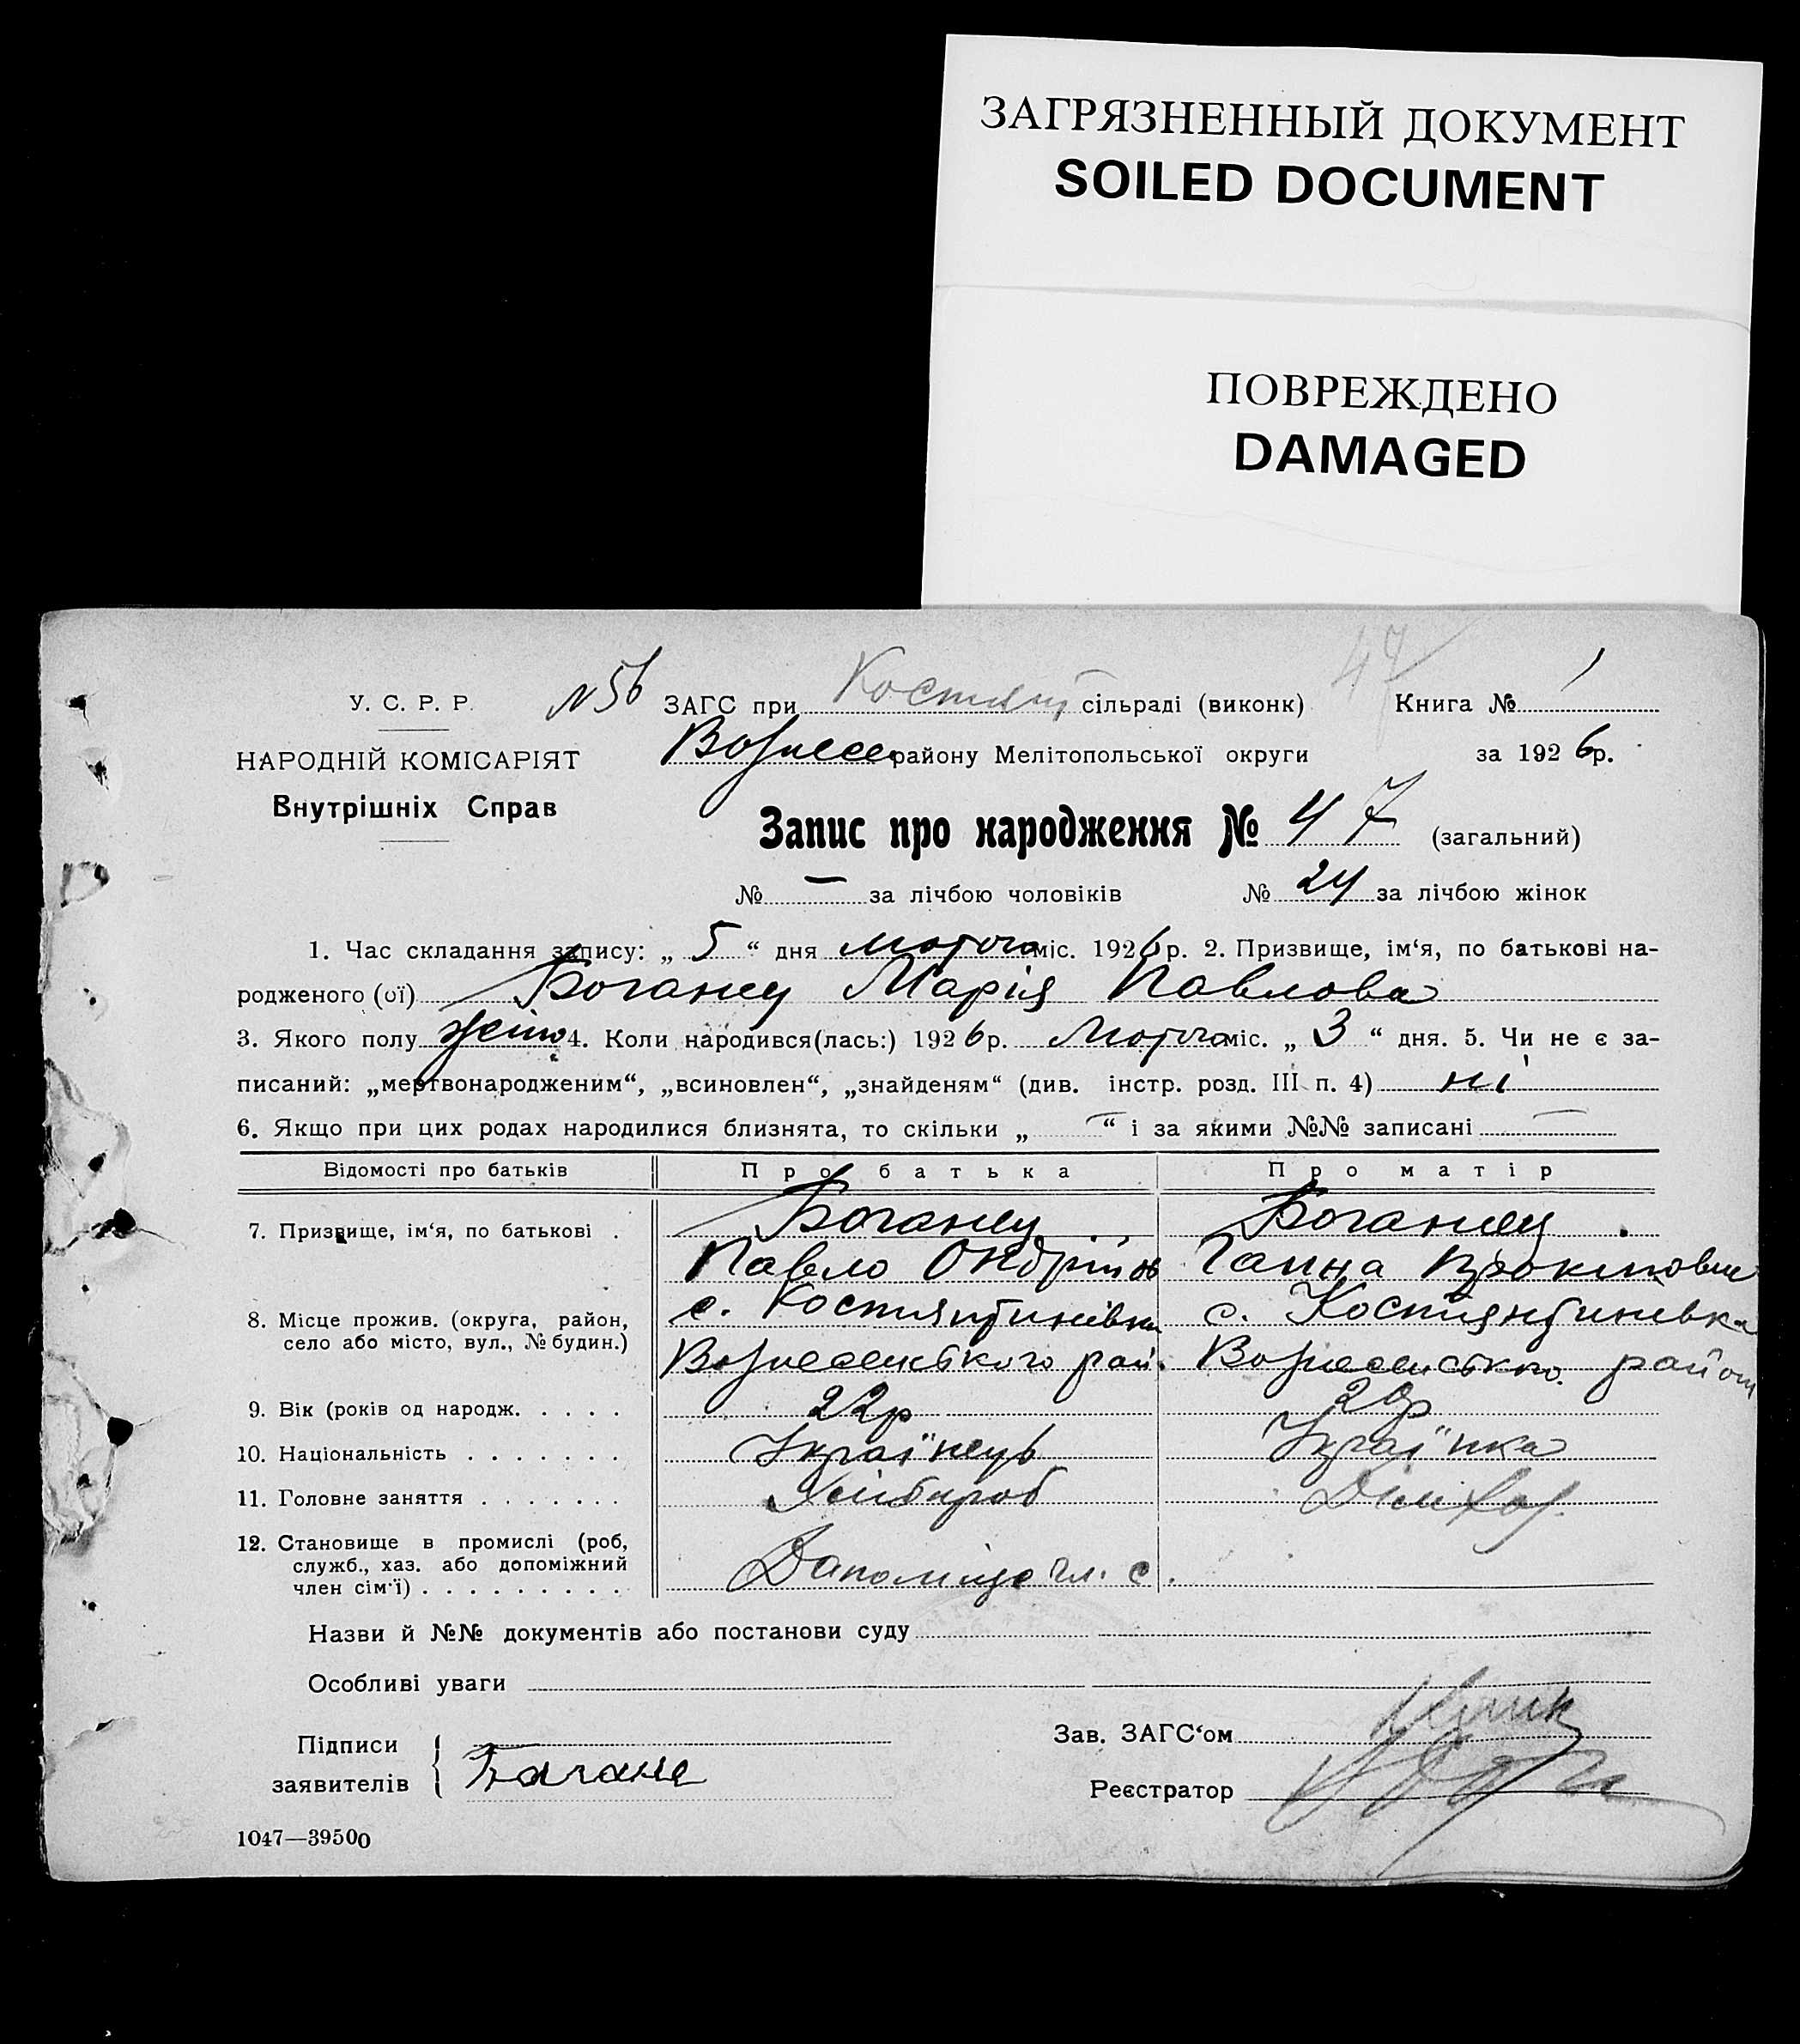 ЗАГРЯЗНЕННЫЙ ДОКУМЕНТ
SOILED DOCUMENT
ПОВРЕЖДЕНО
DAMAGED
У. С. Р. Р.
НАРОДНІЙ КОМІСАРІЯТ
Внутрішніх Справ
N 56 ЗАГС при Костянт сільраді (виконк) 47 Книга № 1
Вознесен району Мелітопольської округи за 1926р.
Запис про народження № 47 (загальний)
№ — за лічбою чоловіків № 24 за лічбою жінок
1. Час складання запису: „ 5 “ дня лютого міс. 1926р. 2. Призвище, ім‘я, по батькові на-
родженого (ої) Боганец Марія Павлова
3. Якого полу жіно 4. Коли народився(лась:) 1926р. Лютого міс. „ 3 “ дня. 5. Чи не є за-
писаний: „мертвонародженим“, „всиновлен“, „знайденям“ (див. інстр. розд. III п. 4) ні
6. Якщо при цих родах народилися близнята, то скільки „ — “ і за якими №№ записані —
Відомості про батьків Про батька Про матір
7. Призвище, ім‘я, по батькові . Боганец Боганец
Павло Ондрійов Ганна
8. Місце прожив. (округа, район, с. Костянтинівка с. Костянтинівка
село або місто, вул., № будин.) Вознесенського рай. Вознесенського район
9. Вік (років од народж. . . . . 22р 20р
10. Національність . . . . . . . Українець Українка
11. Головне заняття . . . . . . . Хлібороб
12. Становище в промислі (роб,
служб., хаз. або допоміжний
член сім‘ї) . . . . . . . . . чл. с.
Назви й №№ документів або постанови суду
Особливі уваги
Підписи
заявителів { Багане
Зав. ЗАГС‘ом
Реєстратор
1047—39500